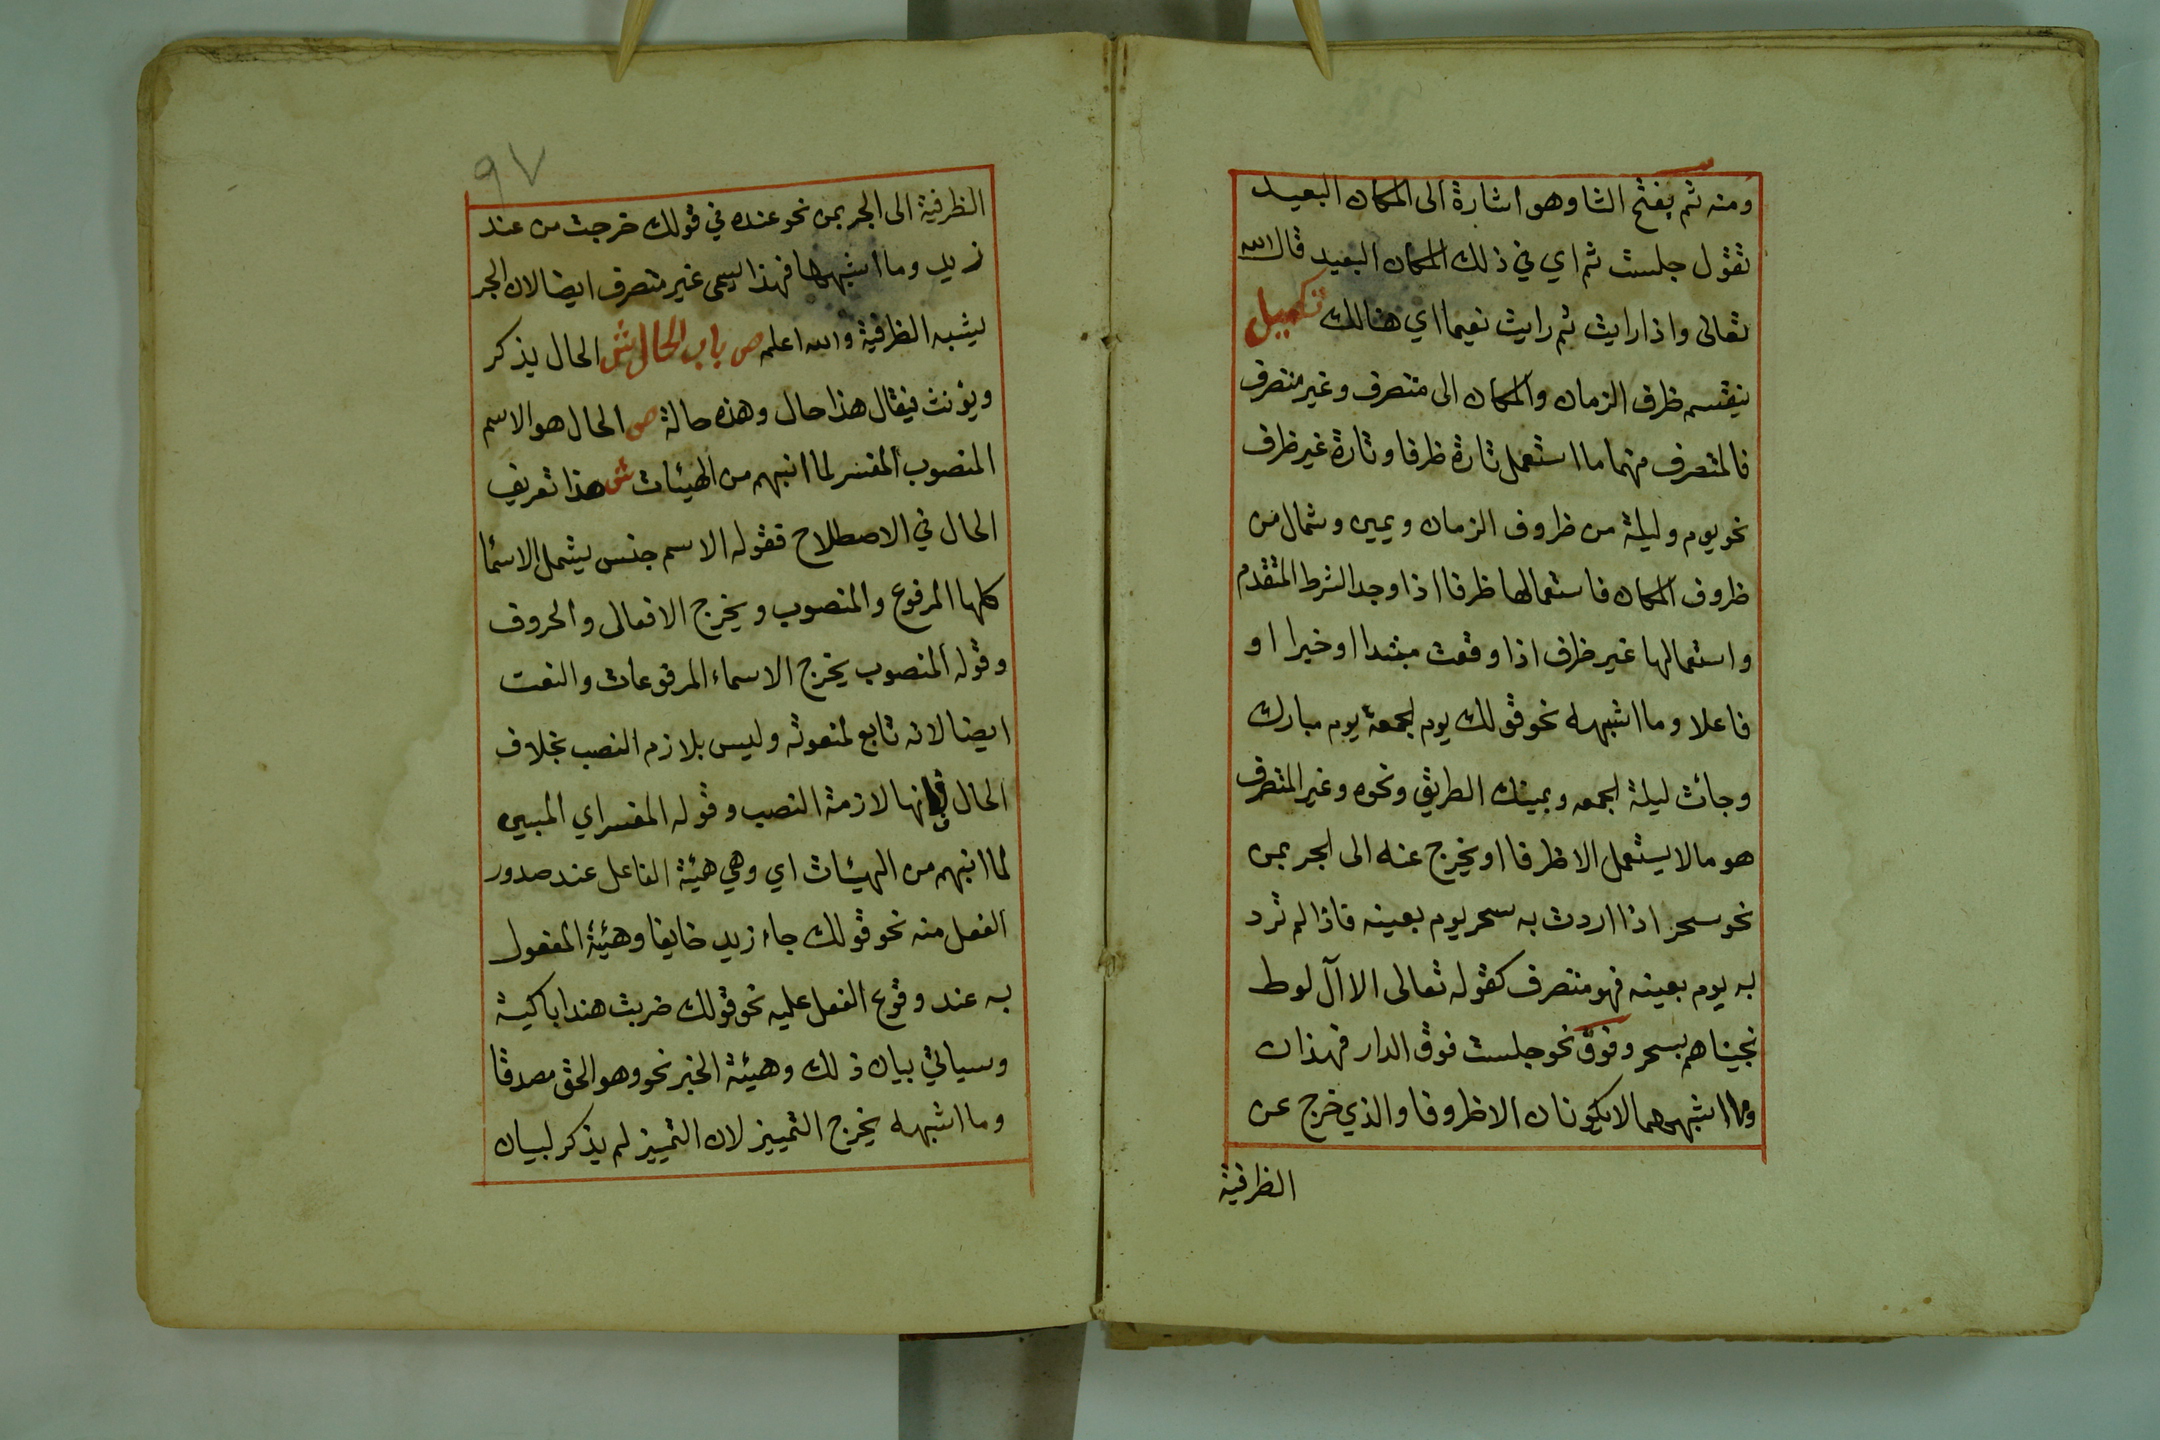 ومنه ثم بفتح الثا وهو اشارة الى المكان البعيد
تقول جلست ثم اي في ذلك المكان البعيد قال الله
تعالى واذا رايت ثم رايت نعيما اي هنالك تكميل
ينقسم ظرف الزمان والمكان الى متصرف وغير متصرف
فالمتصرف منهما ما استعمل تارة ظرفا وتارة غير ظرف
نحو يوم وليلة من ظروف الزمان ويمين وشمال من
ظروف المكان فاستعمالها ظرفا اذا وجد الشرط المتقدم
واستعمالها غير ظرف اذا وقعت مبتدا او خبرا او
فاعلا وما اشبهه نحو قولك يوم الجمعة يوم مبارك
وجائت ليلة الجمعه ويمينك الطريق ونحوه وغير المتصرف
هو ما لا يستعمل الا ظرفا او يخرج عنه الى الجر بمن
نحو سحر اذا اردت به سحر يوم بعينه فاذا لم ترد
به يوم بعينه فهو متصرف كقوله تعالى الا آل لوط
نجيناهم بسحر وفوق نحو جلست فوق الدار فهذان
وما اشبههما لا يكونان الا ظروفا والذي خرج عن
الظرفية
٩٧
الظرفية الى الجر بمن نحو عنده في قولك خرجت من عند
زيد وما اشبهها فهذا يسمى غير متصرف ايضا لان الجر
يشبه الظرفية والله اعلم ص باب الحال ش الحال يذكر
ويؤنث فيقال هذا حال وهذه حالة ص الحال هو الاسم
المنصوب المفسر لما انبهم من الهيئات ش هذا تعريف
الحال في الاصطلاح فقوله الاسم جنس يشمل الاسما
كلها المرفوع والمنصوب ويخرج الافعال والحروف
وقوله المنصوب يخرج الاسماء المرفوعات والنعت
ايضا لانه تابع لمنعوته وليس بلازم النصب بخلاف
الحال فانها لازمة النصب وقوله المفسر اي المبين
لما انبهم من الهيئات اي وهي هيئة الفاعل عند صدور
الفعل منه نحو قولك جاء زيد خايفا وهيئة المفعول
به عند وقوع الفعل عليه نحو قولك ضربت هندا باكية
وسياتي بيان ذلك وهيئة الخبر نحو وهو الحق مصدقا
وما اشبهه يخرج التمييز لان التمييز لم يذكر لبيان